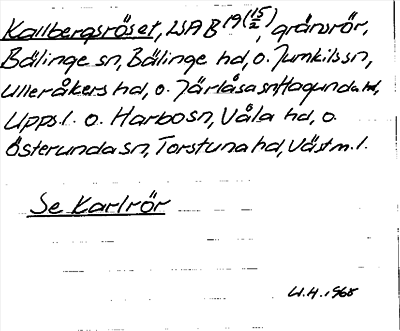 Kallbergsröset, LSA B19(15/2), gränsrör,
Bälinge sn, Bälinge hd, o. Jumkils sn,
Ulleråkers hd, o. Järlåsa sn Hagunda hd,
Upps. l. o. Harbo sn, Våla hd, o.
Österunda sn, Torstuna hd, Västm. l.
Se Karlrör
W.H. 1968